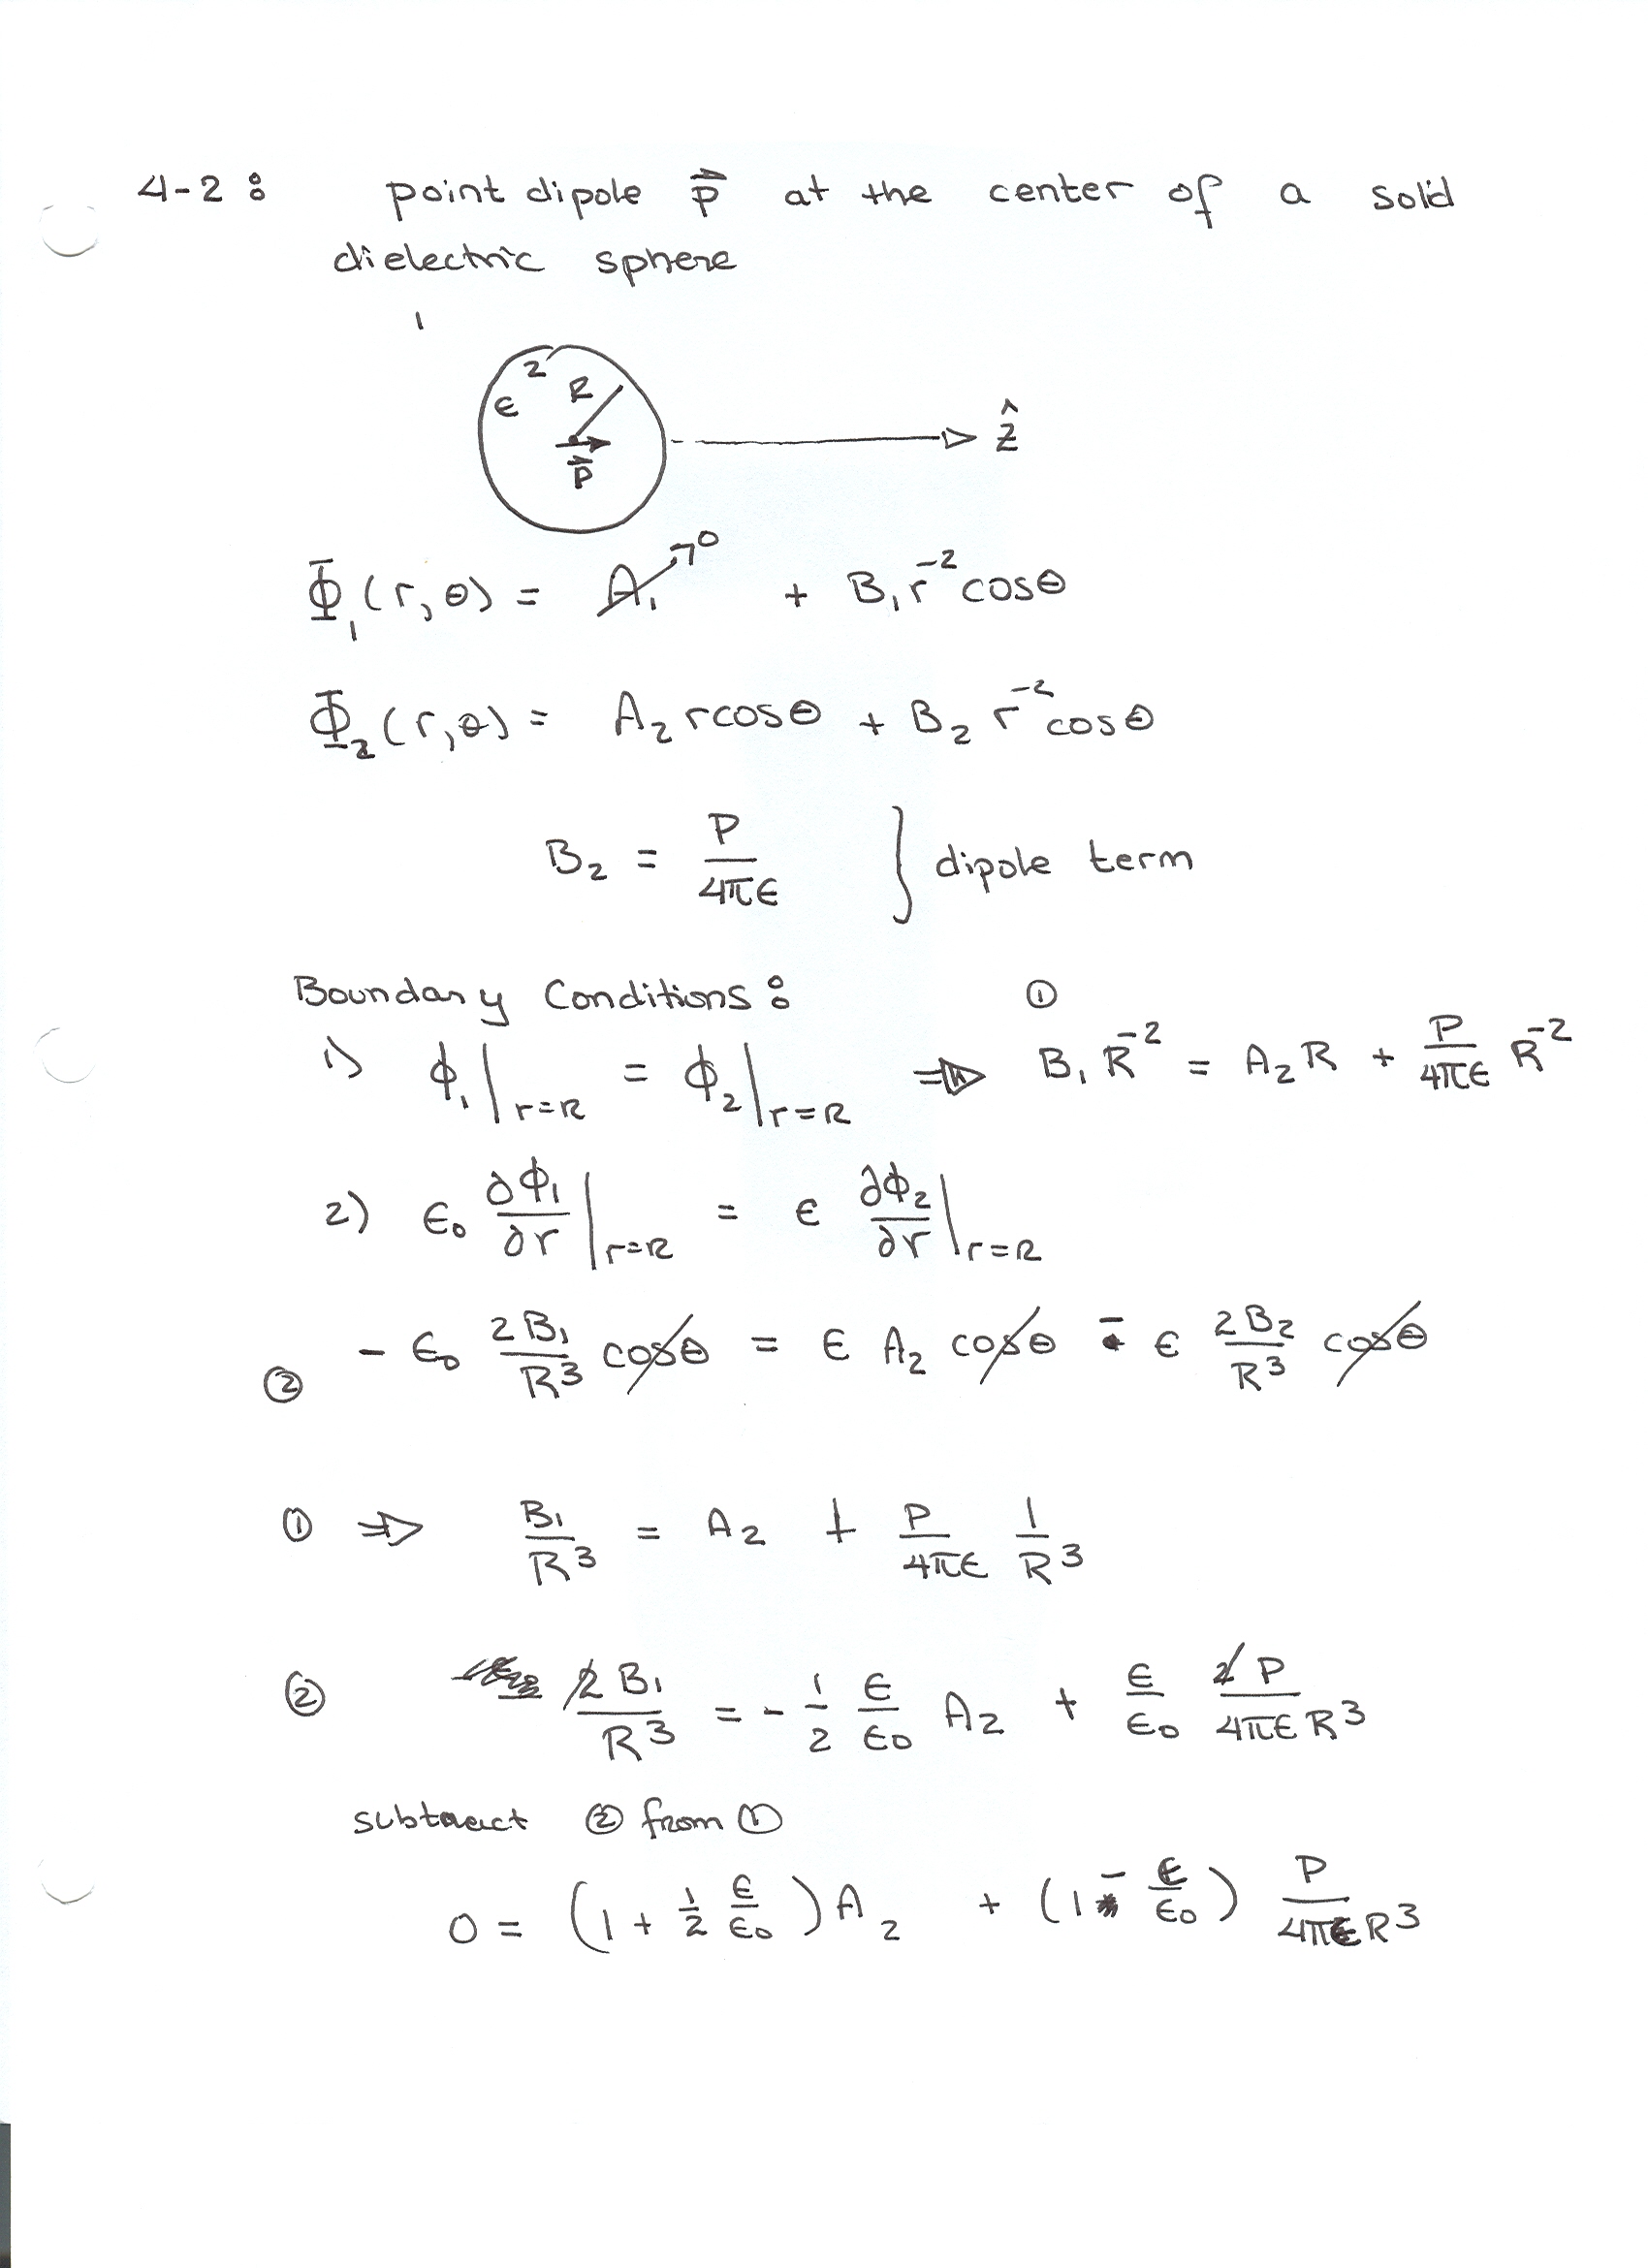 4-2: point dipole p⃗ at the center of a solid
dielectric sphere
1
2
ϵ R
p⃗
ẑ
Φ₁(r,θ) = A₁ →0 + B₁ r⁻² cosθ
Φ₂(r,θ) = A₂ r cosθ + B₂ r⁻² cosθ
B₂ = P/4πϵ } dipole term
Boundary Conditions: ①
1) ϕ₁|r=R = ϕ₂|r=R ⇒ B₁ R⁻² = A₂ R + P/4πϵ R⁻²
2) ϵ₀ ∂ϕ₁/∂r |r=R = ϵ ∂ϕ₂/∂r |r=R
② - ϵ₀ 2B₁/R³ cosθ = ϵ A₂ cosθ - ϵ 2B₂/R³ cosθ
① ⇒ B₁/R³ = A₂ + P/4πϵ 1/R³
② 2B₁/R³ = - 1/2 ϵ/ϵ₀ A₂ + ϵ/ϵ₀ 2P/4πϵR³
subtract ② from ①
0 = (1 + 1/2 ϵ/ϵ₀) A₂ + (1 - ϵ/ϵ₀) P/4πϵR³